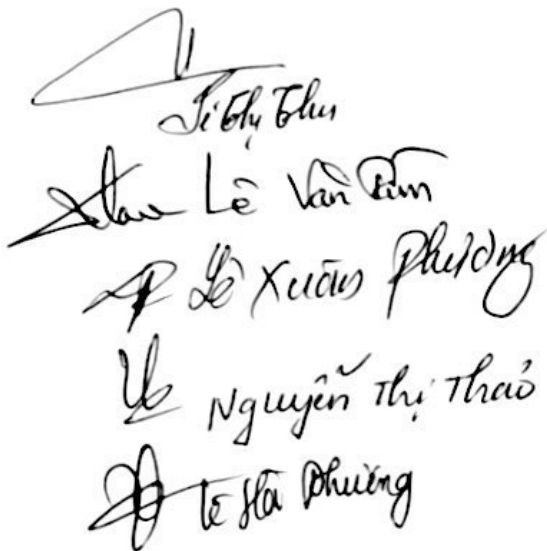 Thị Thu
Lê Văn
Lê Xuân Phương
Nguyễn Thị Thảo
Lê Hà Phương